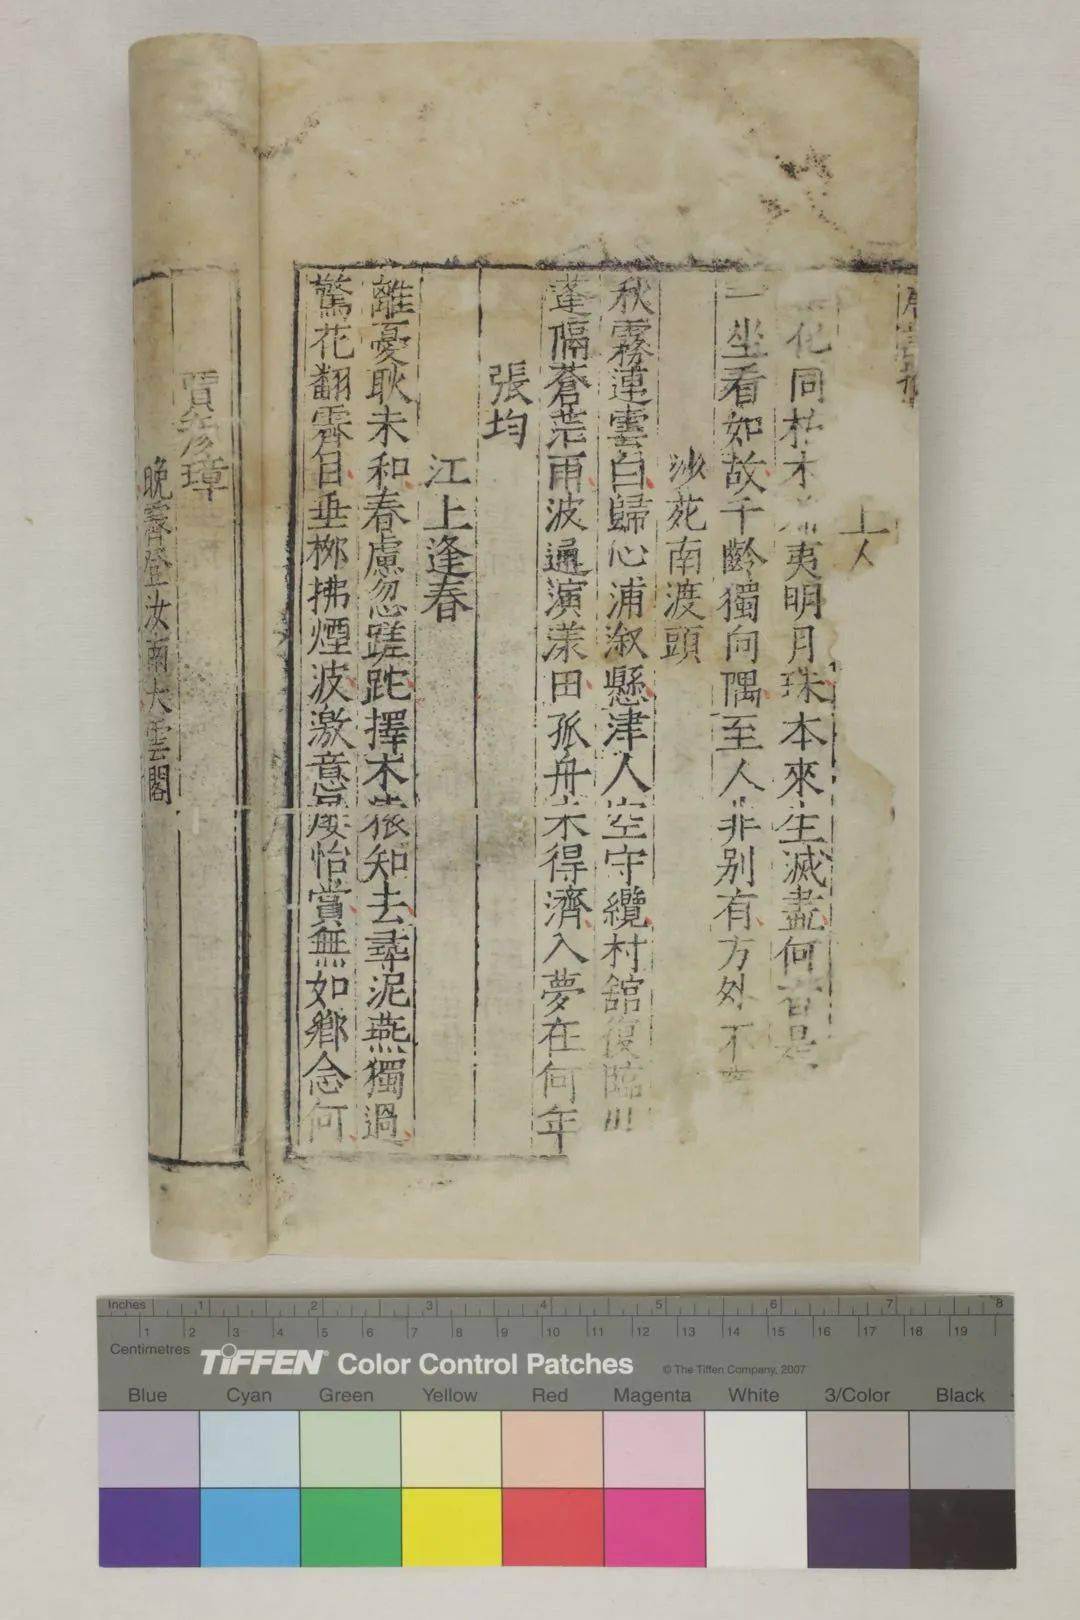 上人
化同柏木
夷明月珠本來生滅盡何
是
一坐看如故千齡獨向隅至人非別有方外不
沙苑南渡頭
秋霧連雲白歸心浦溆懸津人空守纜村舘復臨川
蓬隔蒼茫雨波通演漾田孤舟未得濟入夢在何年
張均
江上逢春
離憂耿未和春慮忽蹉跎擇木猿知去尋泥燕獨過
驚花翻霽日垂栁拂煙波激意屢怡賞無如鄉念何
賈彥璋
晚霽登汝南大雲閣
Inches 1 2 3 4 5 6 7 8
Centimetres 1 2 3 4 5 6 7 8 9 10 11 12 13 14 15 16 17 18 19
TIFFEN® Color Control Patches © The Tiffen Company, 2007
Blue Cyan Green Yellow Red Magenta White 3/Color Black